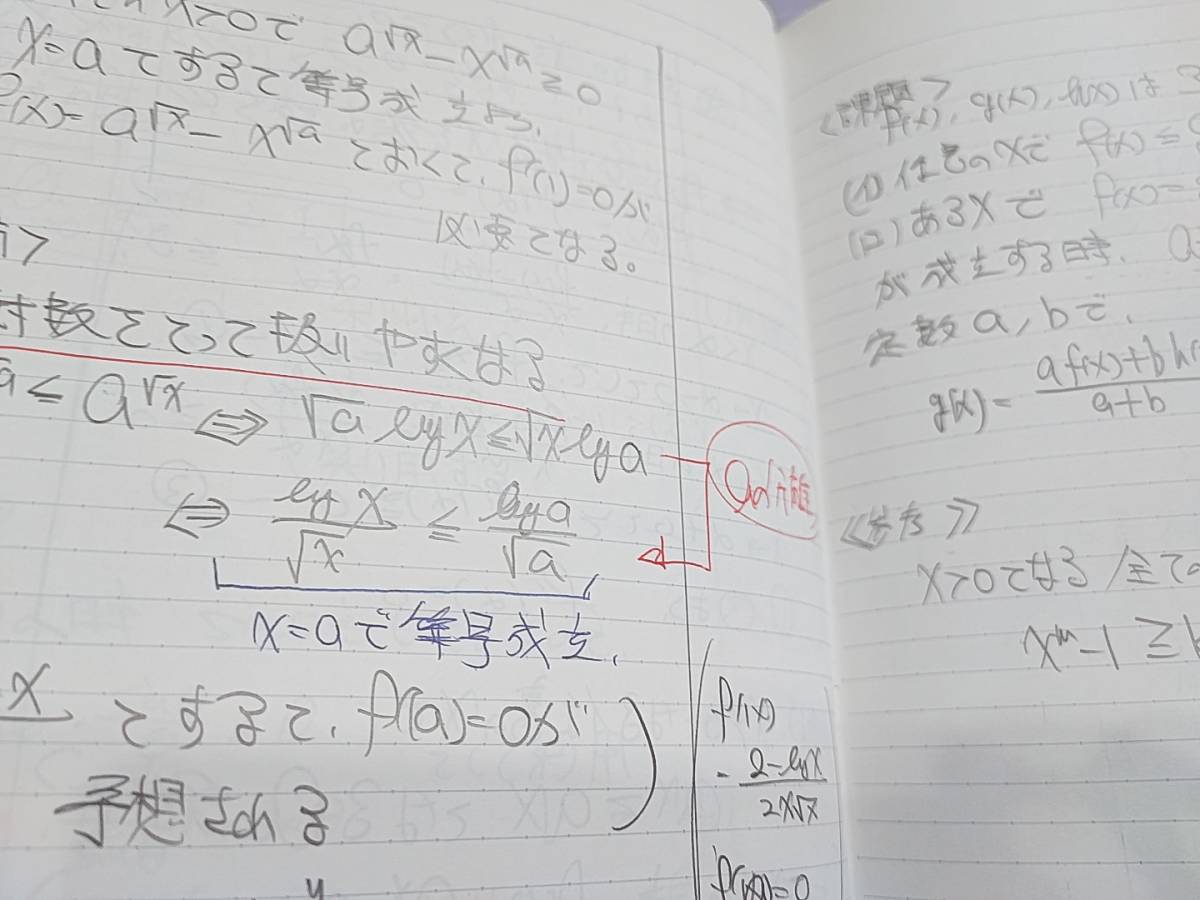 x>0で a^√x - x^√a ≧ 0
x=aとすると等号成立より、
f(x)= a^√x - x^√a とおくと、f'(1)=0が
必要となる。
>
対数をとって扱いやすくなる
a ≤ a^√x ⇔ √a log x ≤ √x log a
⇔ log x/√x ≤ log a/√a
aの分離
x=aで等号成立.
x とすると、f'(a)=0が
予想される
f'(x)
= 2-log x/2x√x
f'(x)=0
y
<課題>
f(x), g(x), h(x) は 3
(イ) 任意のxで f(x) ≤
(ロ) あるxで f(x)=
が成立する時、a
定数a,bで、
g'(x)= a f'(x)+b h'(/a+b
《参考》
x>0なる全ての
x^m-1 ≧ k